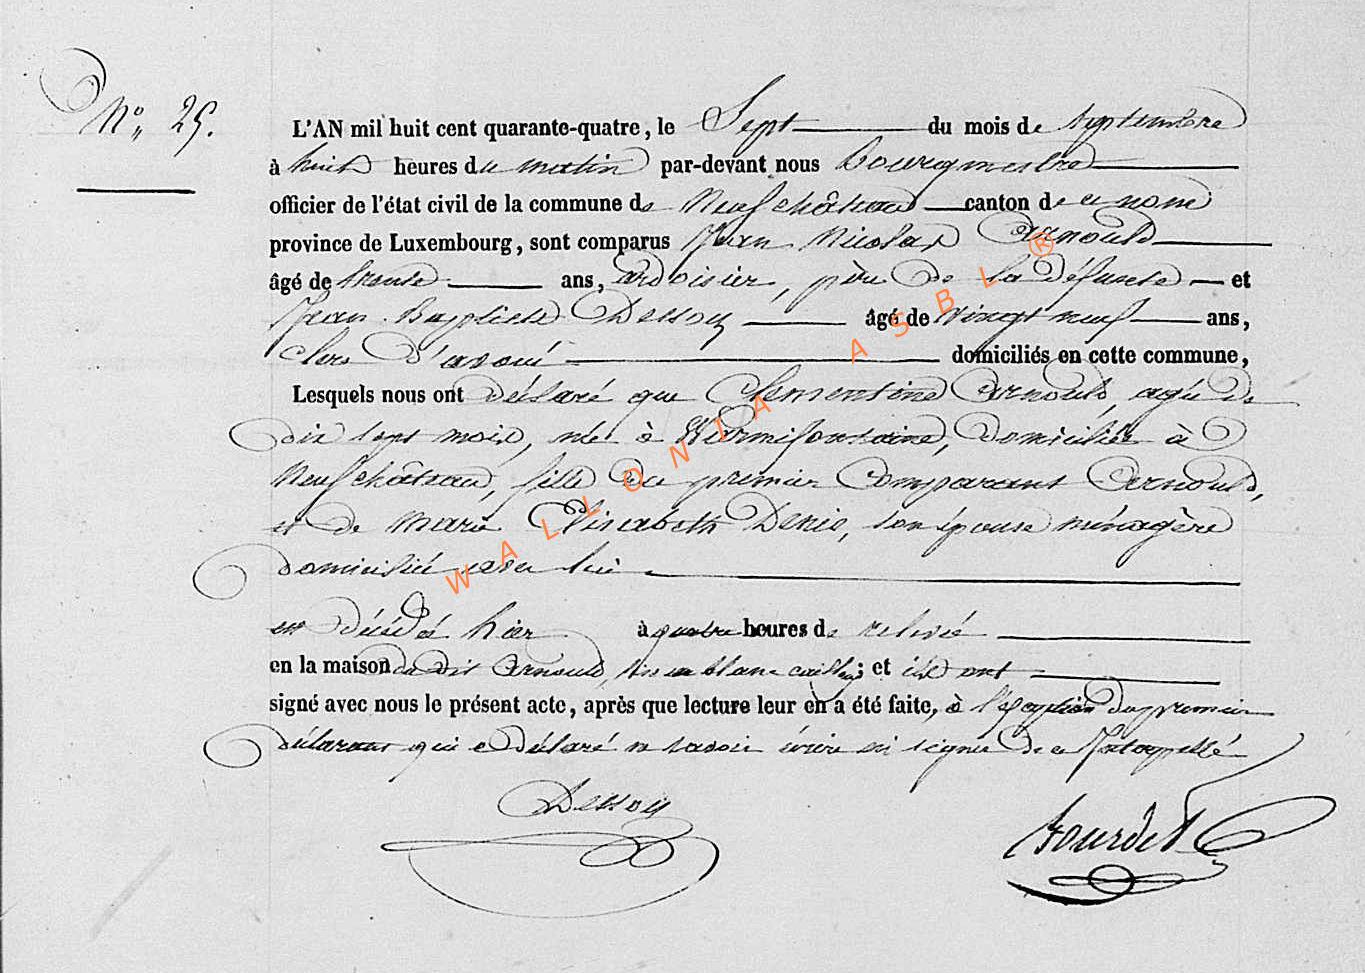 N° 25.
L'AN mil huit cent quarante-quatre, le Sept du mois de Septembre
à huit heures du matin par-devant nous Bourgmestre
officier de l'état civil de la commune de Neufchâteau canton de ce nom
province de Luxembourg, sont comparus Jean Nicolas Arnould
âgé de trente ans, ardoisier, père de la défunte et
Jean Baptiste Dessoy âgé de vingt neuf ans,
clerc d'avoué domiciliés en cette commune,
Lesquels nous ont déclaré que Clementine Arnould, agée de
dix sept mois, née à Warmifontaine, domiciliée à
Neufchâteau, fille du premier comparant Arnould,
et de Marie Elisabeth Denis, son épouse ménagère
domiciliée avec lui
est décédée hier à quatre heures de relevée
en la maison du dit Arnould, sise au blanc caillou; et ils ont
signé avec nous le présent acte, après que lecture leur en a été faite, à l'exception du premier
déclarant qui a déclaré ne savoir écrire ni signer de ce interpellé
Dessoy
Bourdet
WALLONIA ASBL ®